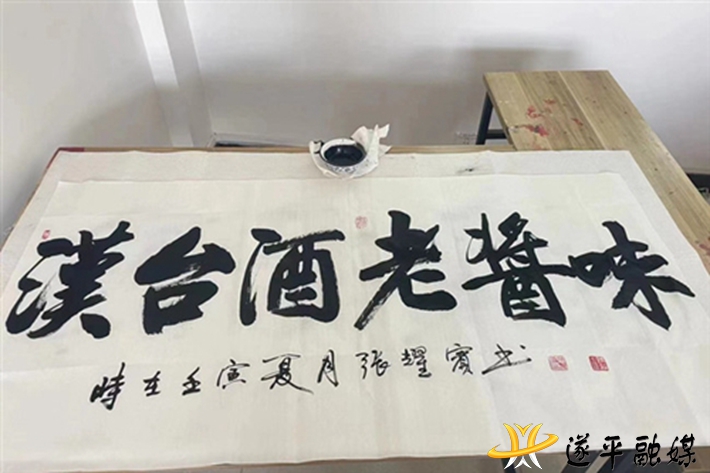 漢台酒老醬味
時在壬寅夏月張耀寶书
遂平融媒